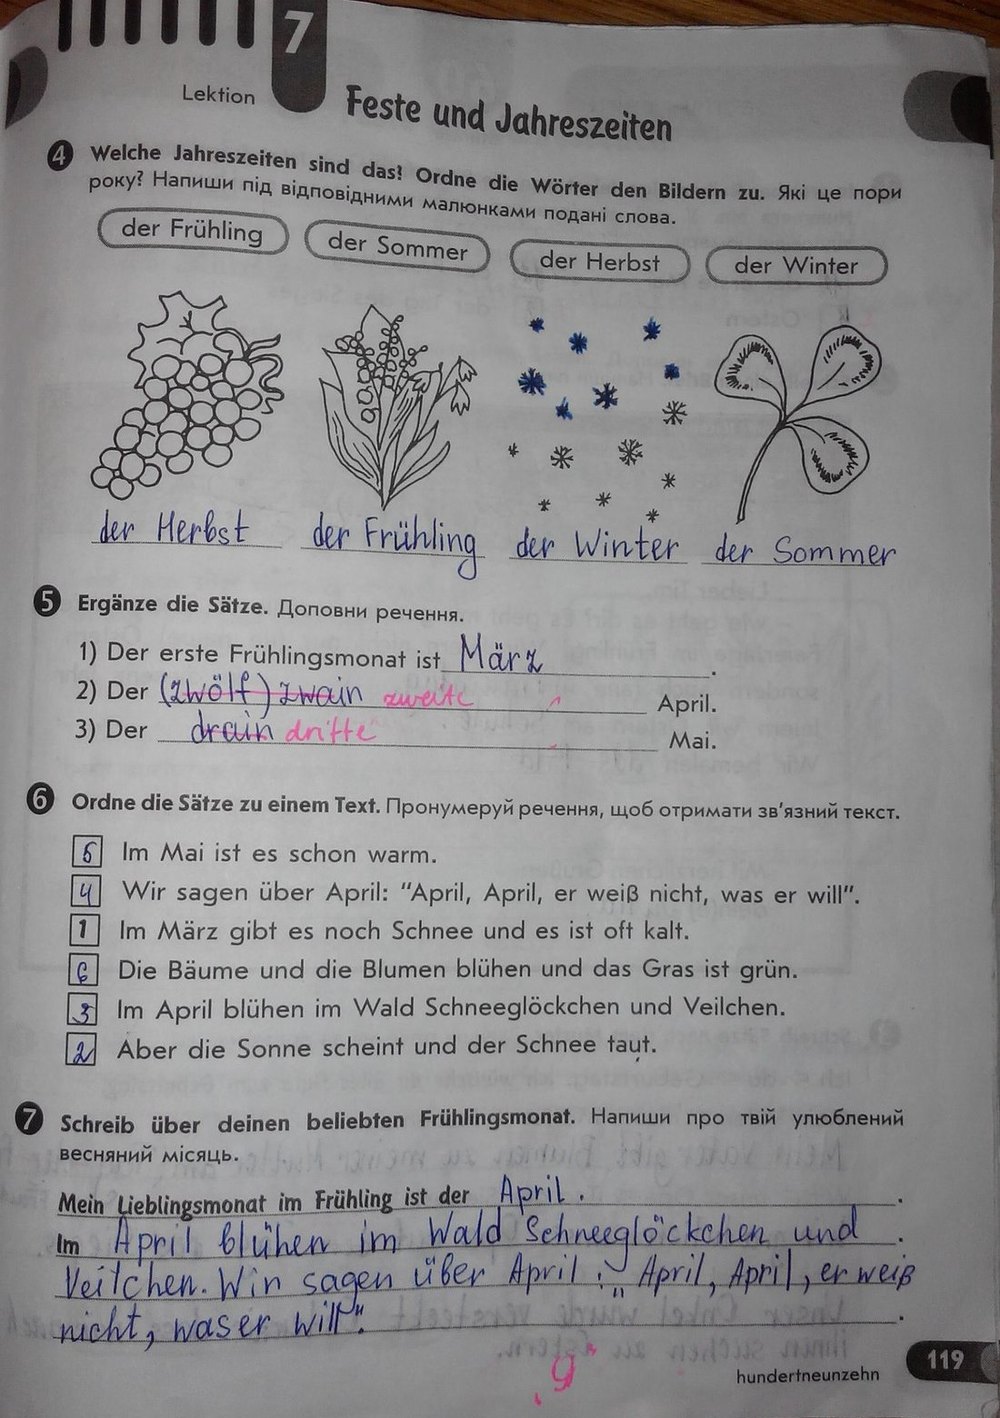 7
Lektion
Feste und Jahreszeiten
4 Welche Jahreszeiten sind das? Ordne die Wörter den Bildern zu. Які це пори
року? Напиши під відповідними малюнками подані слова.
der Frühling der Sommer der Herbst der Winter
der Herbst der Frühling der Winter der Sommer
5 Ergänze die Sätze. Доповни речення.
1) Der erste Frühlingsmonat ist März.
2) Der (zwölf) zwain zweite April.
3) Der drain dritte Mai.
6 Ordne die Sätze zu einem Text. Пронумеруй речення, щоб отримати зв'язний текст.
5 Im Mai ist es schon warm.
4 Wir sagen über April: "April, April, er weiß nicht, was er will".
1 Im März gibt es noch Schnee und es ist oft kalt.
6 Die Bäume und die Blumen blühen und das Gras ist grün.
3 Im April blühen im Wald Schneeglöckchen und Veilchen.
2 Aber die Sonne scheint und der Schnee taut.
7 Schreib über deinen beliebten Frühlingsmonat. Напиши про твій улюблений
весняний місяць.
Mein Lieblingsmonat im Frühling ist der April.
Im April blühen im Wald Schneeglöckchen und
Veilchen. Wir sagen über April: „April, April, er weiß
nicht, was er will".
119
hundertneunzehn